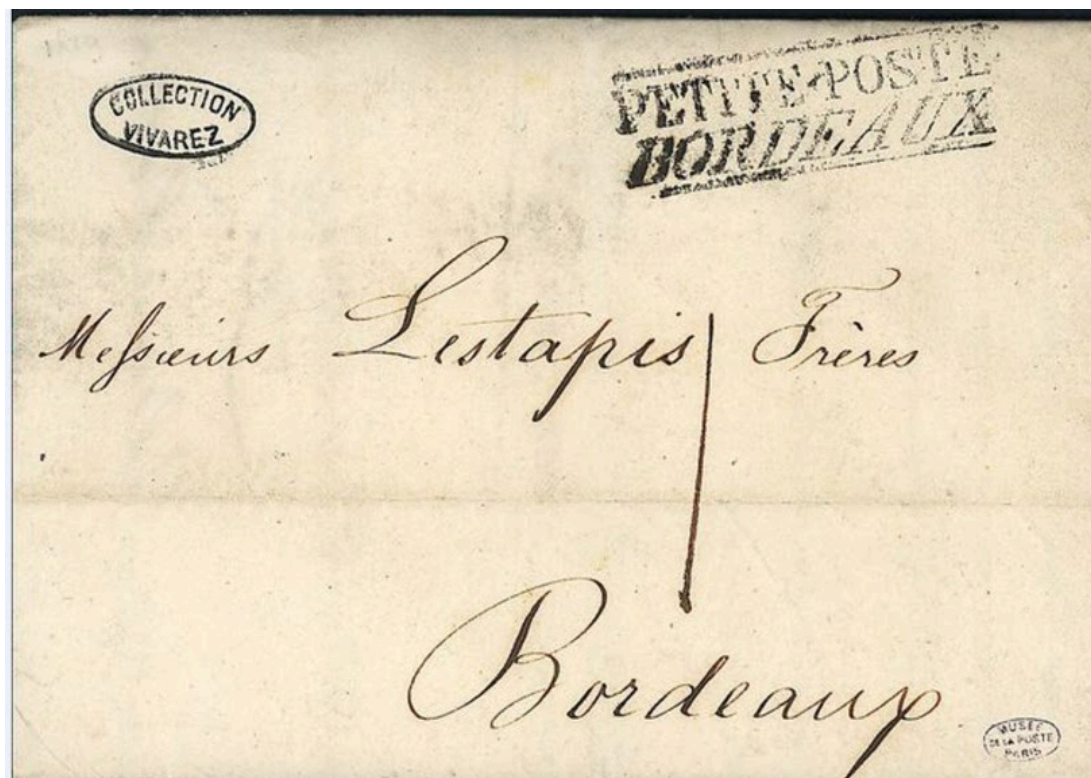 COLLECTION
VIVAREZ
PETITE·POSTE
BORDEAUX
Messieurs Lestapis Frères
1
Bordeaux
MUSÉE
DE LA POSTE
PARIS